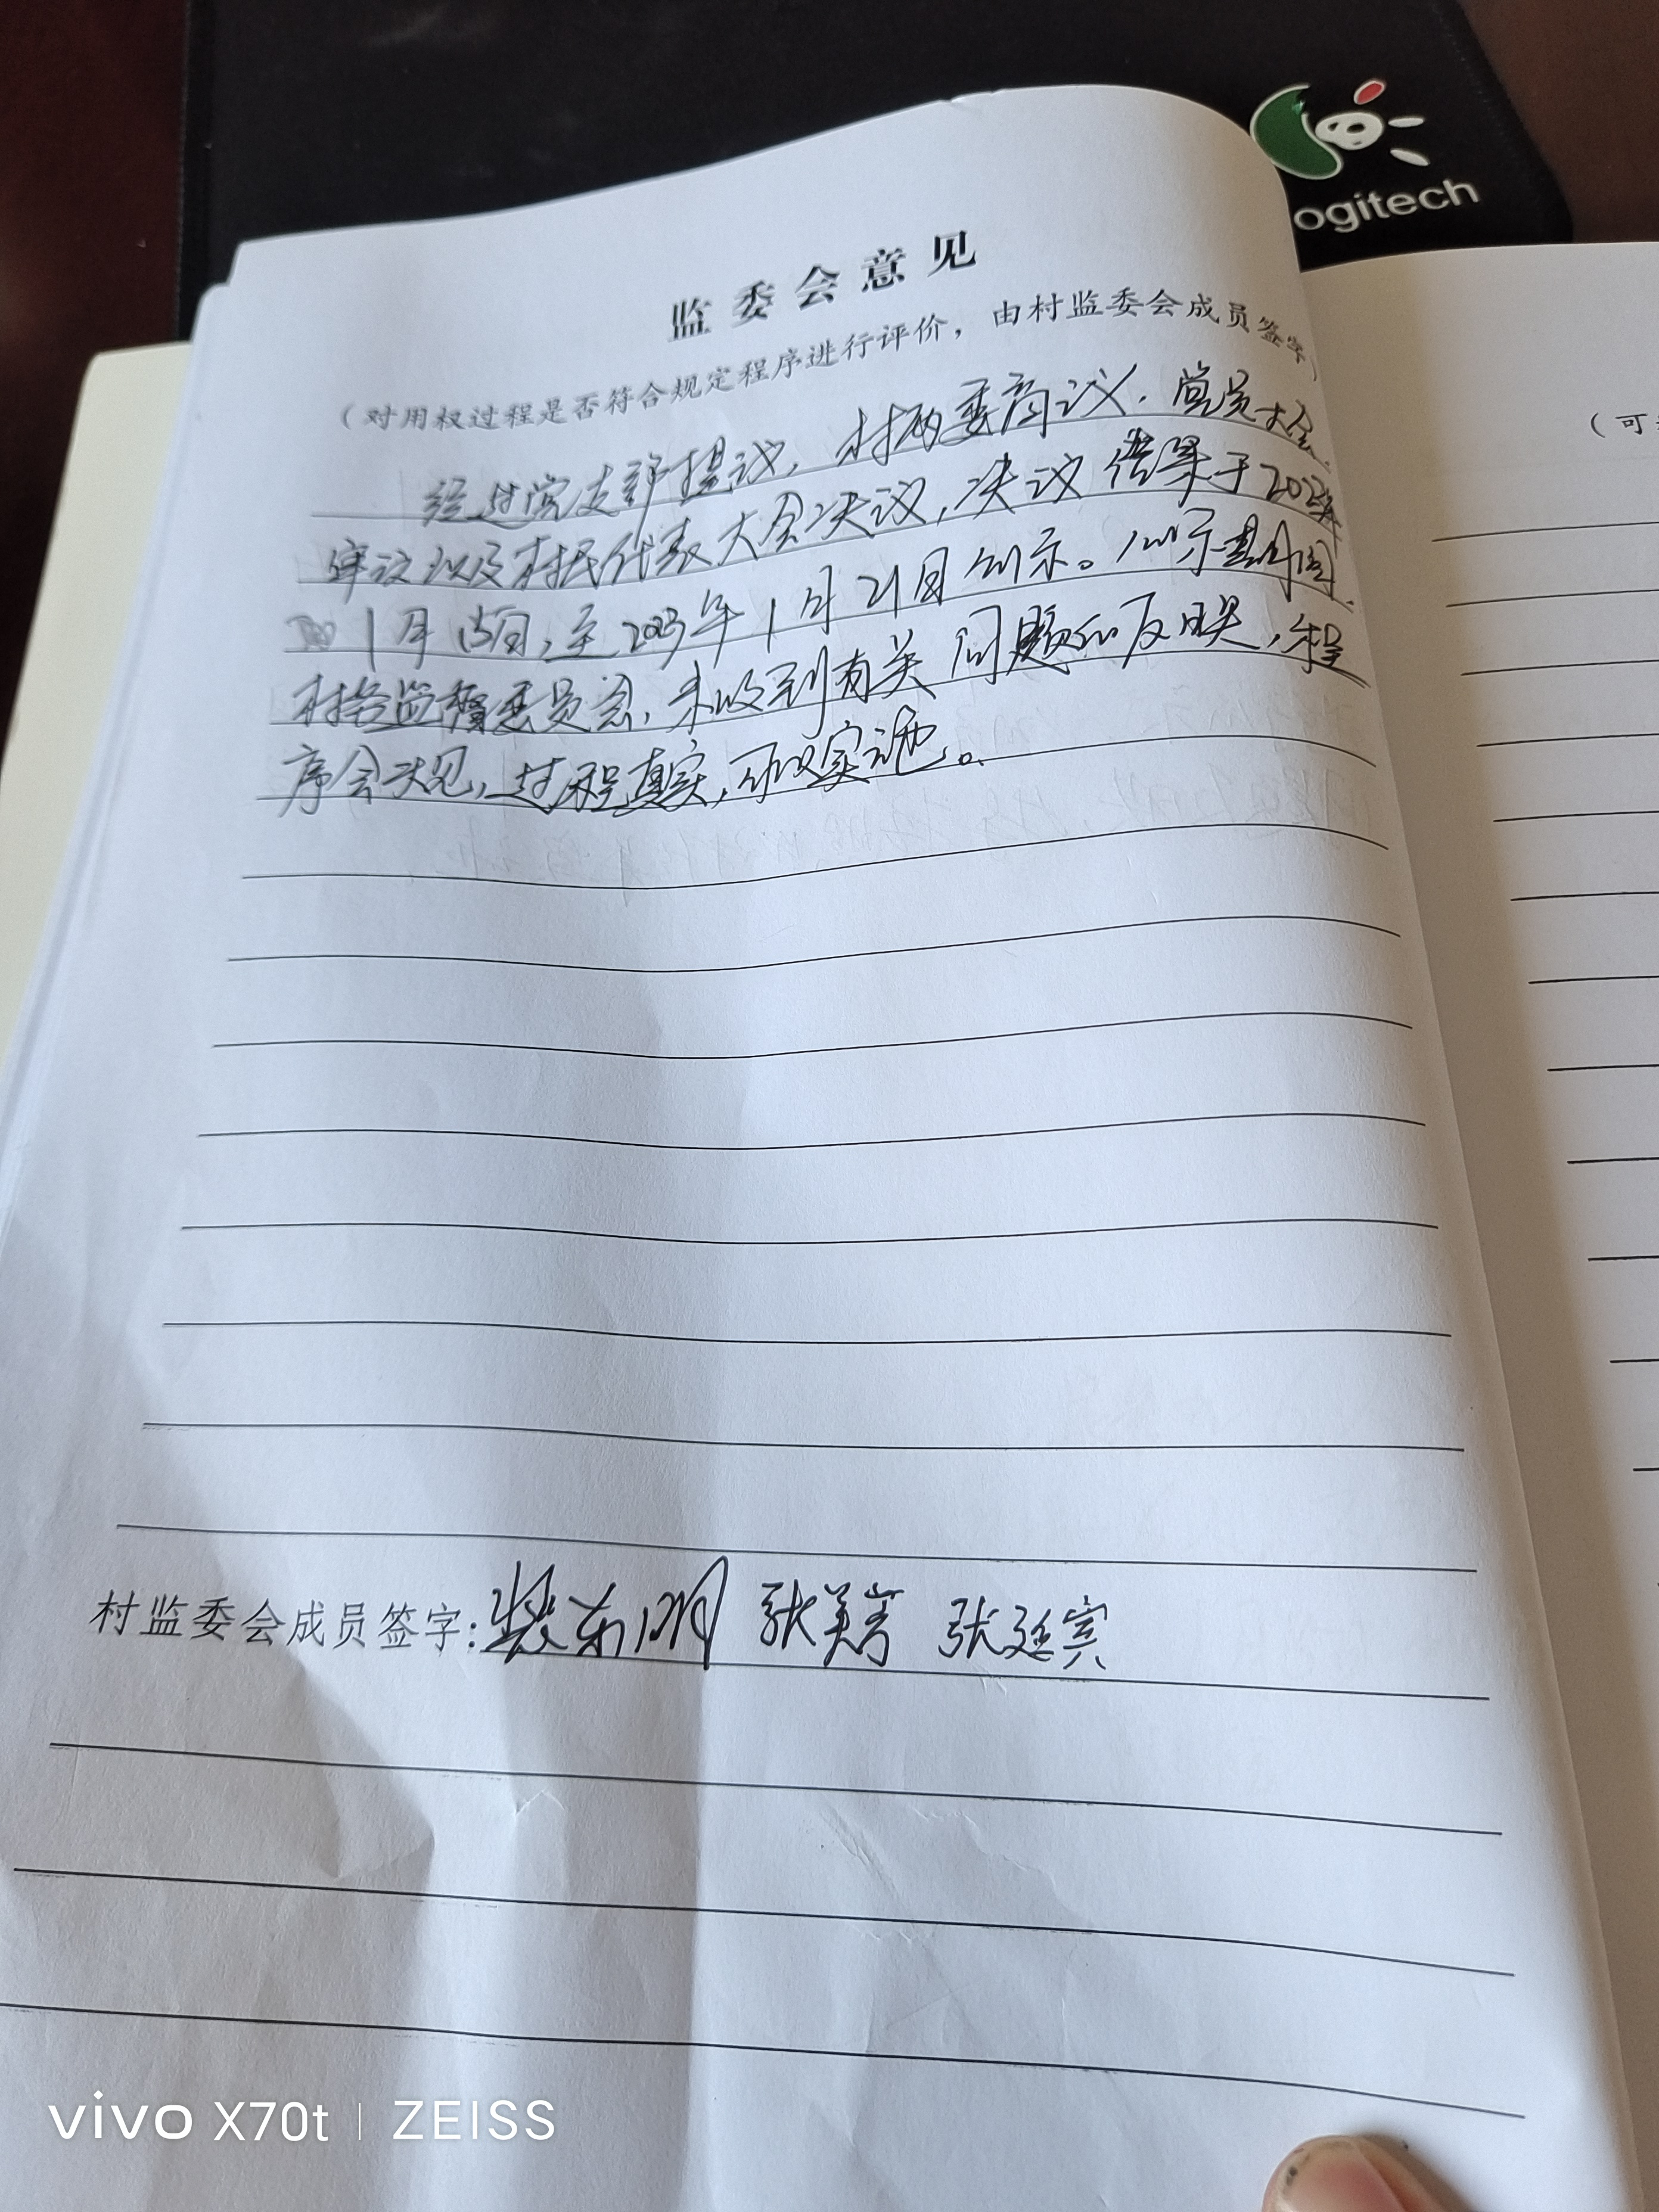 ogitech
监委会意见
（对用权过程是否符合规定程序进行评价，由村监委会成员签字）
经过党支部提议，村两委商议，党员大会
审议以及村民代表大会决议，决议结果于2023年
1月15日，至2023年1月21日公示。公示期间，
村务监督委员会，未收到有关问题的反映，程
序合法，过程真实，可以实施。
村监委会成员签字：东明 张美 张延宾
（可
vivo X70t | ZEISS